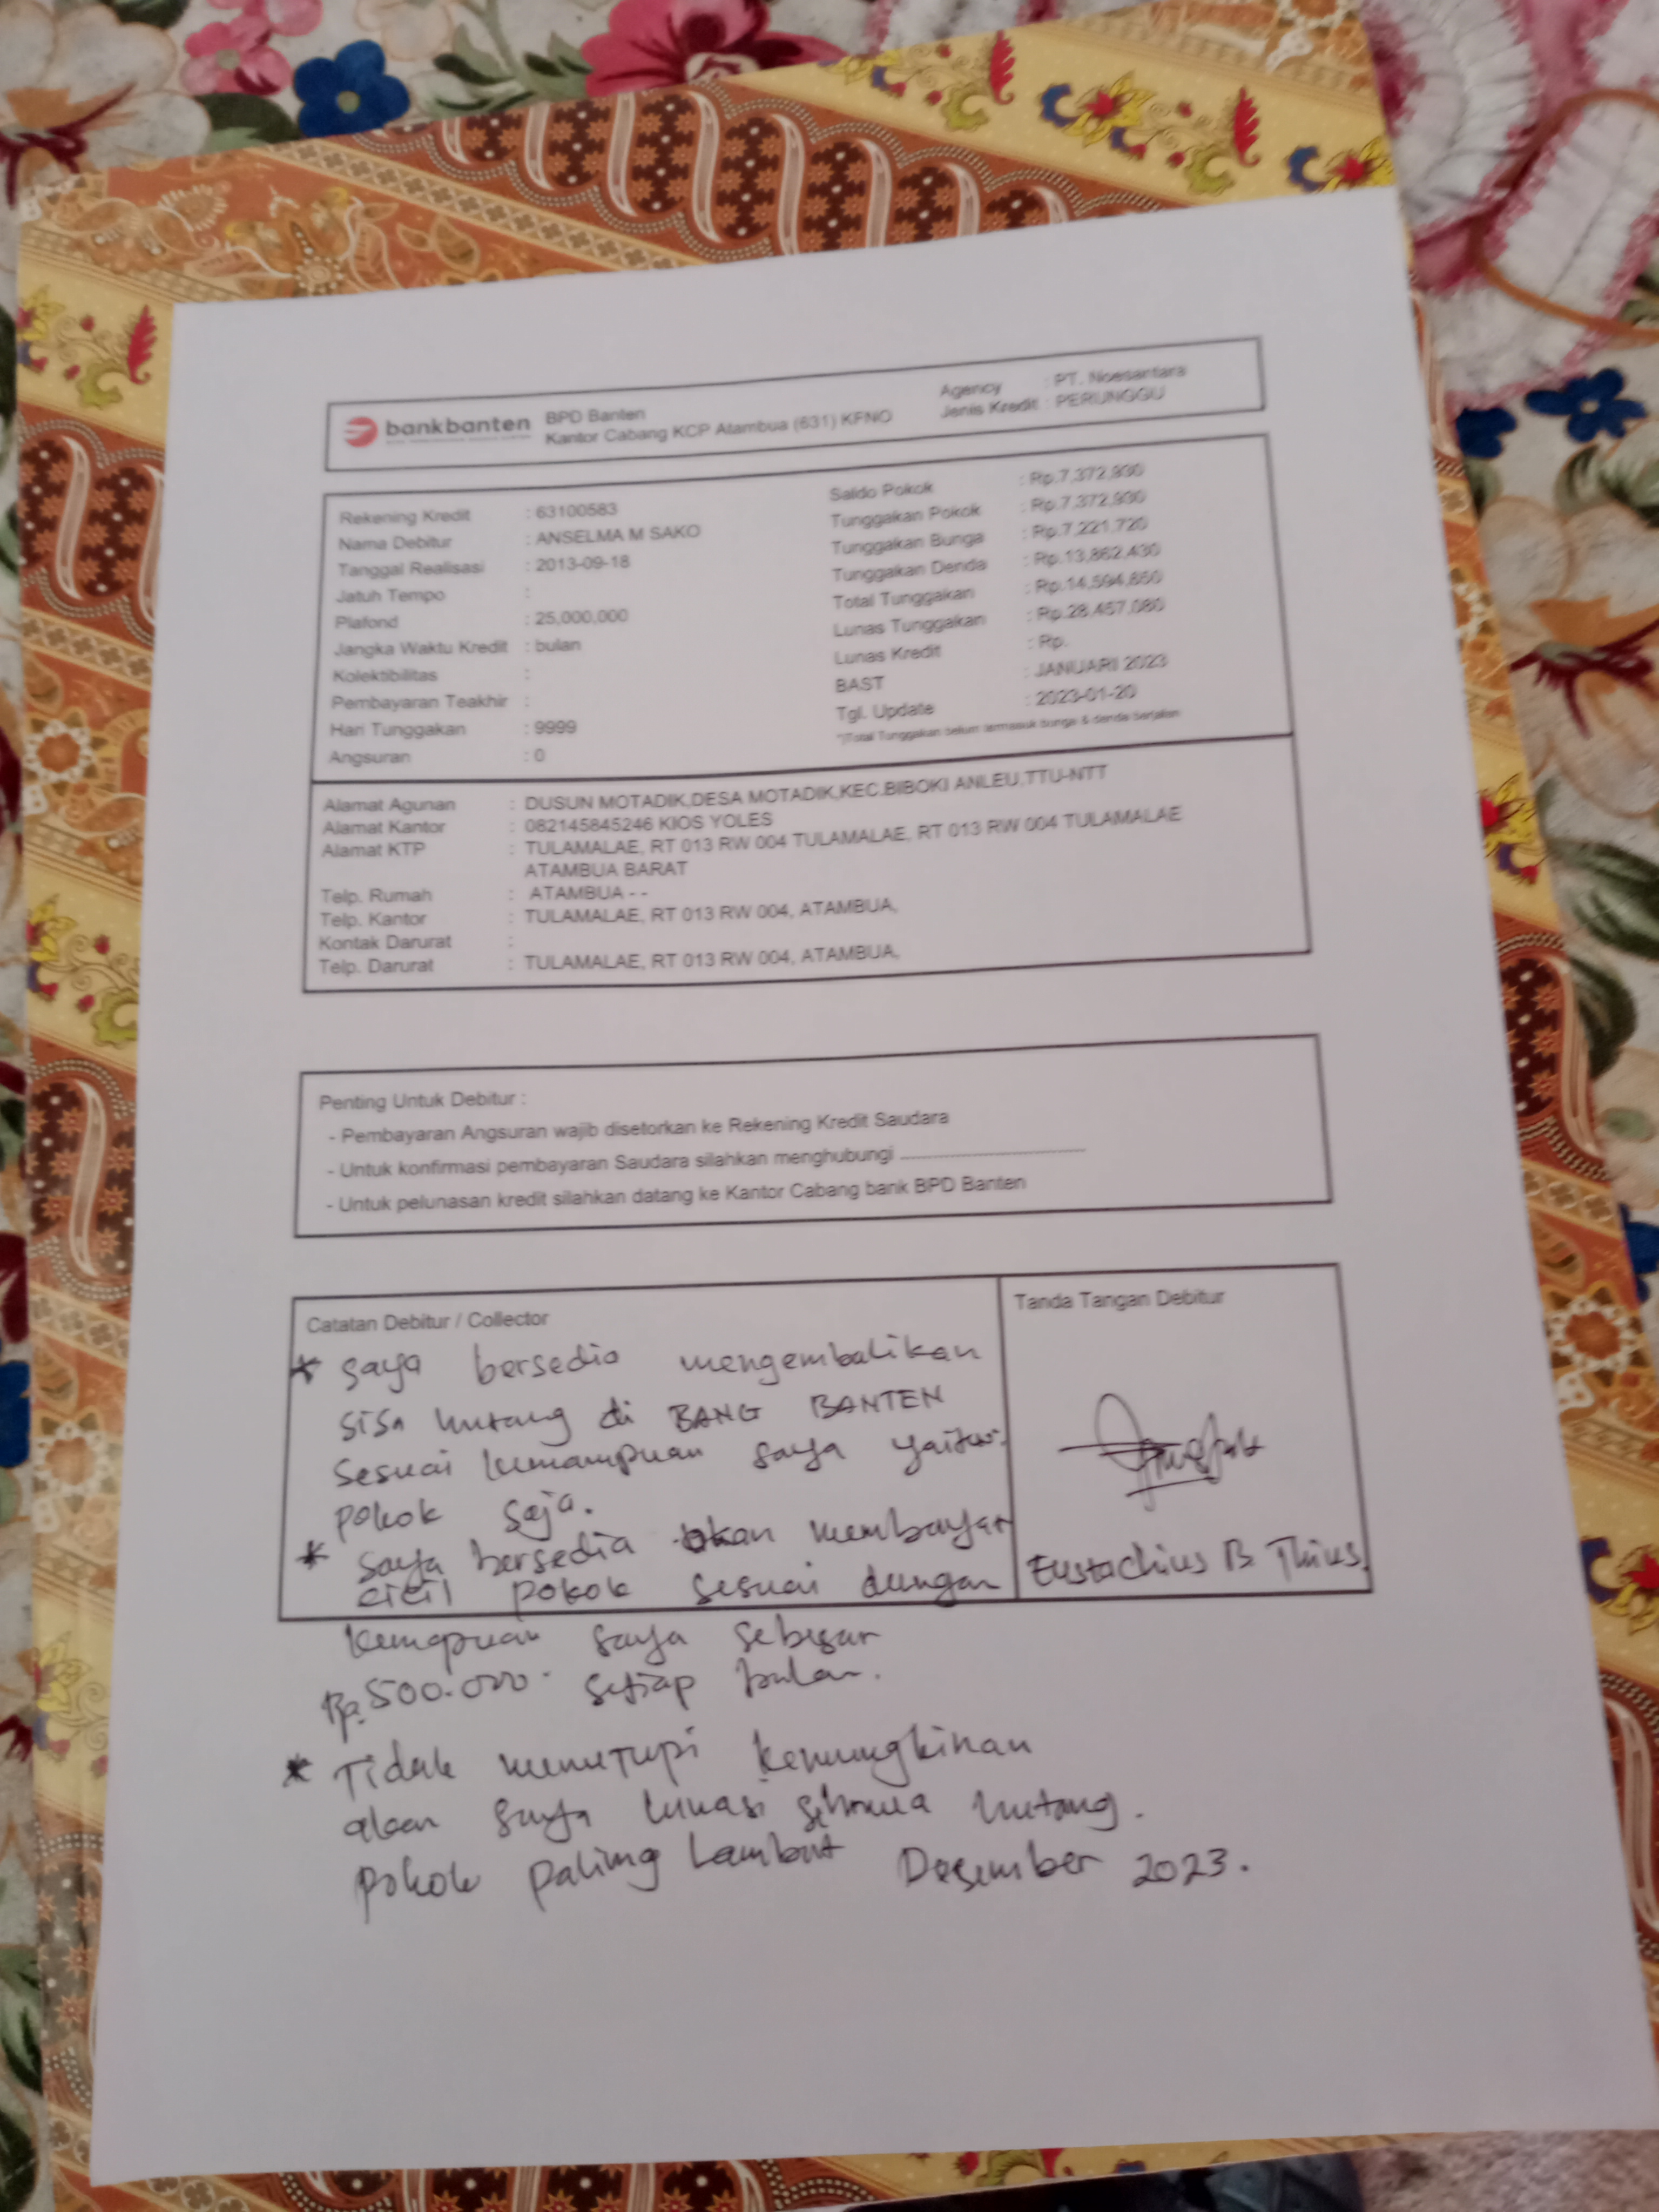 bankbanten
BPD Banten
Kantor Cabang KCP Atambua (631) KFNO
Agency : PT. Noesantara
Jenis Kredit : PERUNGGU
Rekening Kredit : 63100583
Nama Debitur : ANSELMA M SAKO
Tanggal Realisasi : 2013-09-18
Jatuh Tempo :
Plafond : 25,000,000
Jangka Waktu Kredit : bulan
Kolektibilitas :
Pembayaran Teakhir :
Hari Tunggakan : 9999
Angsuran : 0
Saldo Pokok : Rp.7,372,930
Tunggakan Pokok : Rp.7,372,930
Tunggakan Bunga : Rp.7,221,720
Tunggakan Denda : Rp.13,862,430
Total Tunggakan : Rp.14,594,650
Lunas Tunggakan : Rp.28,457,080
Lunas Kredit : Rp.
BAST : JANUARI 2023
Tgl. Update : 2023-01-20
*)Total Tunggakan belum termasuk bunga & denda berjalan
Alamat Agunan : DUSUN MOTADIK,DESA MOTADIK,KEC.BIBOKI ANLEU,TTU-NTT
Alamat Kantor : 082145845246 KIOS YOLES
Alamat KTP : TULAMALAE, RT 013 RW 004 TULAMALAE, RT 013 RW 004 TULAMALAE
ATAMBUA BARAT
Telp. Rumah : ATAMBUA - -
Telp. Kantor : TULAMALAE, RT 013 RW 004, ATAMBUA,
Kontak Darurat :
Telp. Darurat : TULAMALAE, RT 013 RW 004, ATAMBUA,
Penting Untuk Debitur :
- Pembayaran Angsuran wajib disetorkan ke Rekening Kredit Saudara
- Untuk konfirmasi pembayaran Saudara silahkan menghubungi
- Untuk pelunasan kredit silahkan datang ke Kantor Cabang bank BPD Banten
Catatan Debitur / Collector
* saya bersedia mengembalikan
sisa hutang di BANG BANTEN
sesuai kemampuan saya yaitu
pokok saja.
* saya bersedia akan membayar
cicil pokok sesuai dengan
kemapuan saya sebesar
Rp.500.000. setiap bulan.
* Tidak menutupi kemungkinan
akan saya lunasi semua hutang.
pokok paling Lambat Desember 2023.
Tanda Tangan Debitur
Eustachius B Thius.